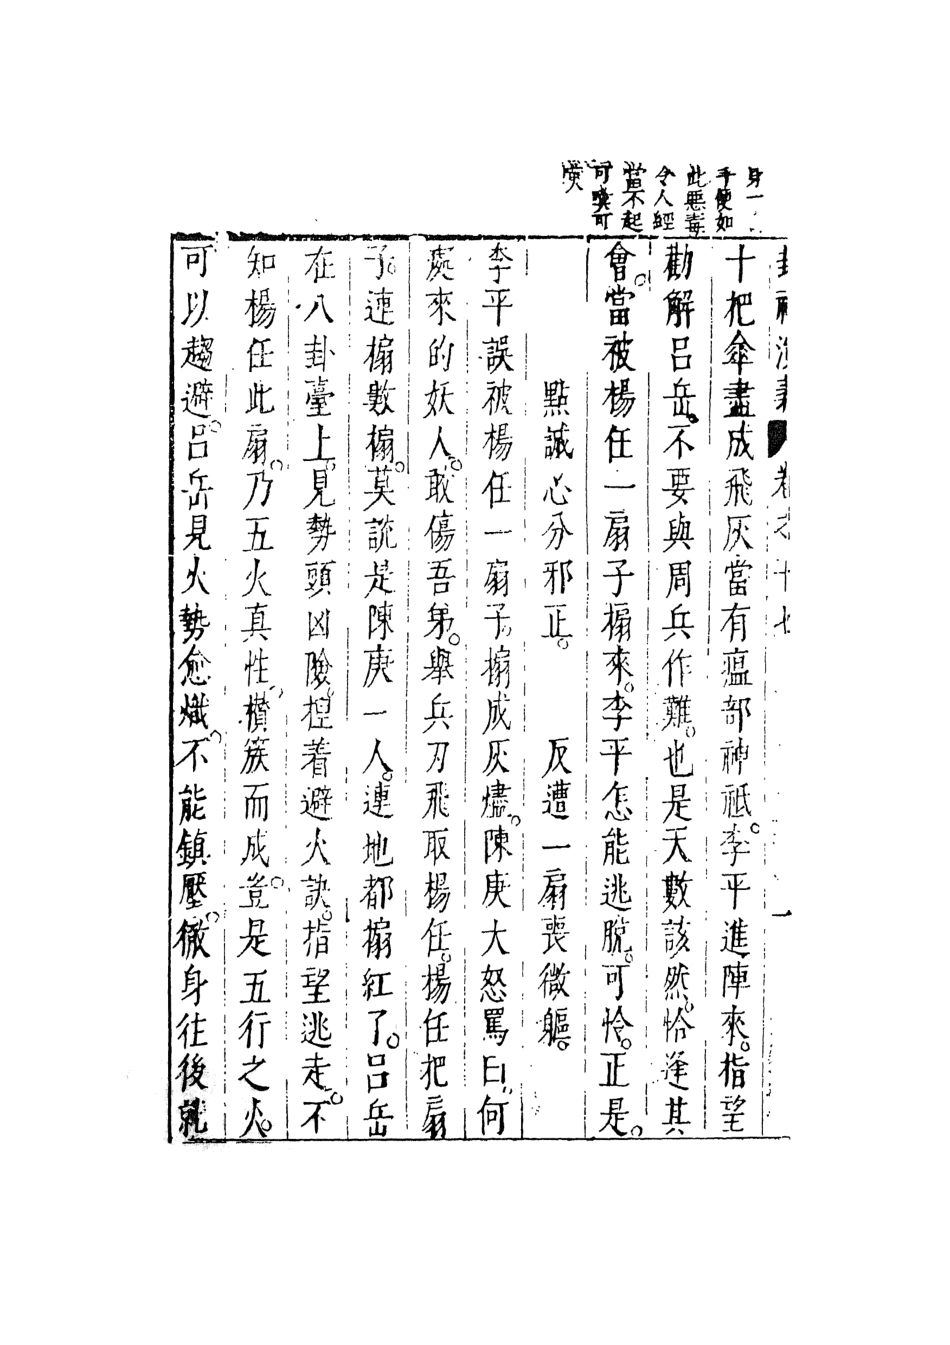 身一
手便如
此惡毒
令人經
當不起
可嘆可
嘆
封神演義 卷之十七 一
十把傘盡成飛灰當有瘟部神祗李平進陣來指望
勸解呂岳不要與周兵作難也是天數該然恰逢其
會當被楊任一扇子搧來李平怎能逃脫可怜正是
點誠心分邪正 反遭一扇喪微軀
李平誤被楊任一扇子搧成灰燼陳庚大怒罵曰何
處來的妖人敢傷吾弟舉兵刃飛取楊任楊任把扇
子連搧數搧莫說是陳庚一人連地都搧紅了呂岳
在八卦臺上見勢頭凶險捏着避火訣指望逃走不
知楊任此扇乃五火真性攢簇而成豈是五行之火
可以趨避呂岳見火勢愈熾不能鎮壓徹身往後就